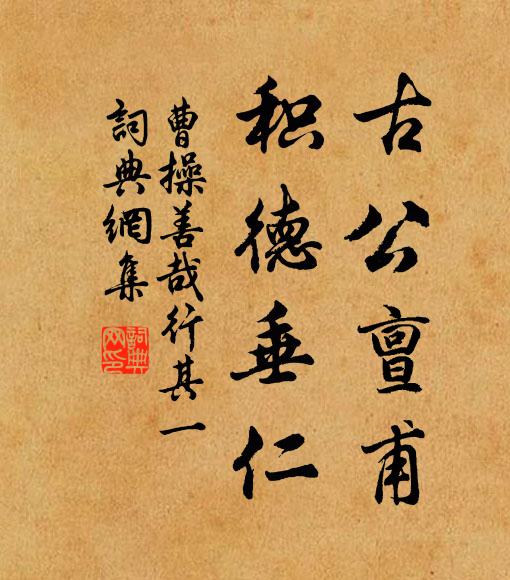 古公亶甫
积德垂仁
曹操善哉行其一
詞典網集
詞典网印